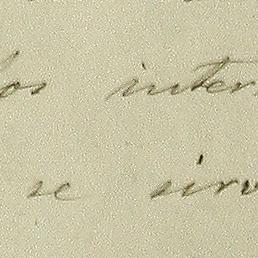 los inter
se sirv